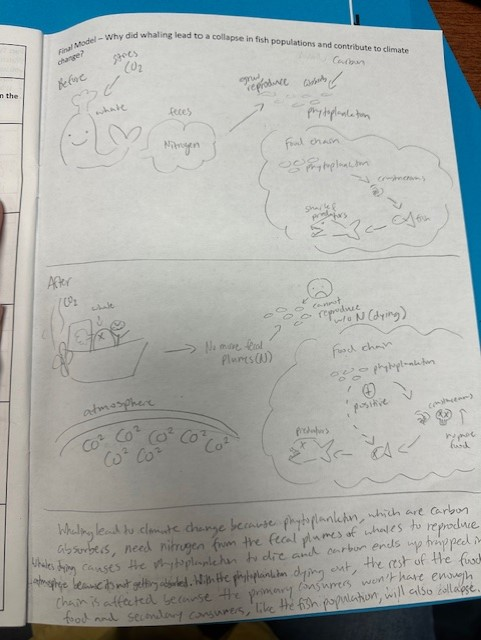 n the
Final Model – Why did whaling lead to a collapse in fish populations and contribute to climate
change?
Before
stores
CO2
whale
feces
Nitrogen
reproduce
Carbon
phytoplankton
Food chain
phytoplankton
crustaceans
fish
predators
After
CO2
whale
No more fecal
plumes (N)
cannot
reproduce
w/o N (dying)
Food chain
phytoplankton
+
positive
crustaceans
no more
food
predators
atmosphere
CO2 CO2 CO2 CO2 CO2
CO2 CO2
Whaling lead to climate change because phytoplankton, which are carbon
absorbers, need nitrogen from the fecal plumes of whales to reproduce
Whales dying causes the phytoplankton to die and carbon ends up trapped in
atmosphere because its not getting absorbed. With the phytoplankton dying out, the rest of the food
chain is affected because the primary consumers won't have enough
food and secondary consumers, like the fish population, will also collapse.